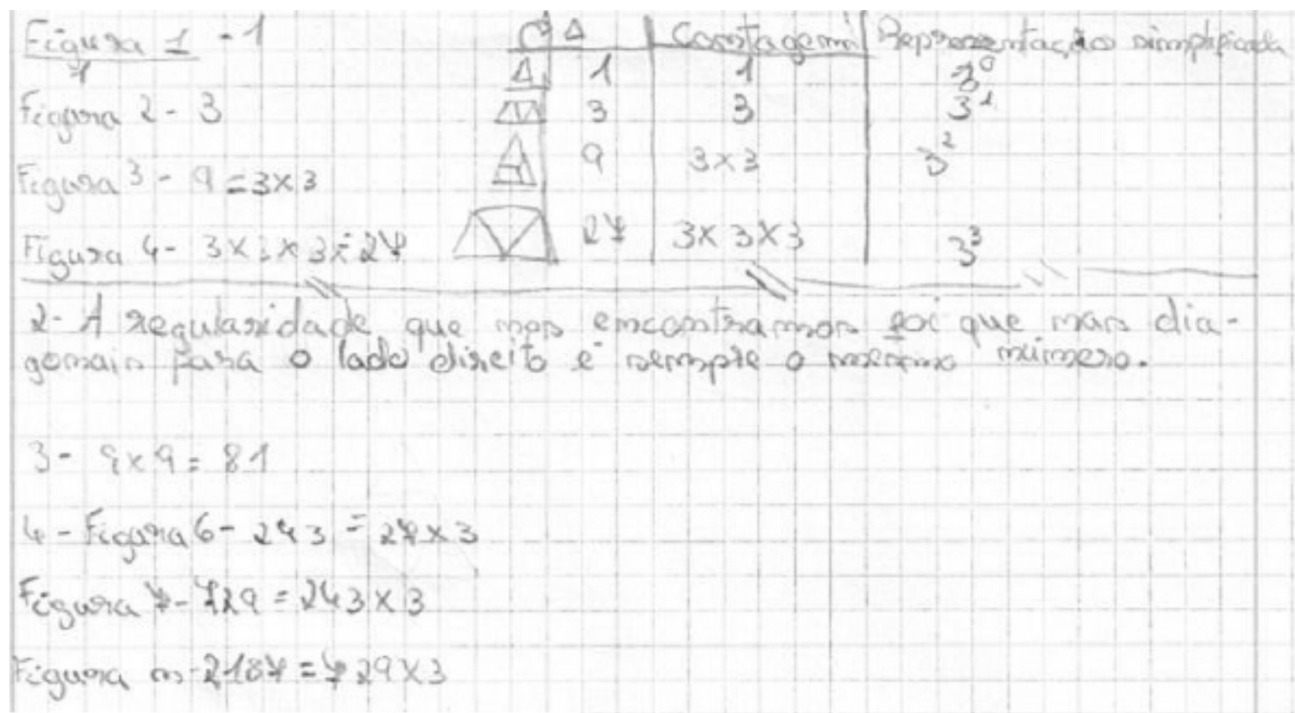 Figura 1 - 1
1
Figura 2 - 3
Figura 3 - 9 = 3x3
Figura 4 - 3x3x3 = 27
Δ Contagem Representação simplificada
1 1 3⁰
3 3 3¹
9 3x3 3²
27 3x3x3 3³
2- A regularidade que nos encontramos foi que nas dia-
gonais para o lado direito é sempre o mesmo número.
3- 9x9 = 81
4- Figura 6- 243 = 27x3
Figura 7- 729 = 243x3
Figura n- 2187 = 729x3